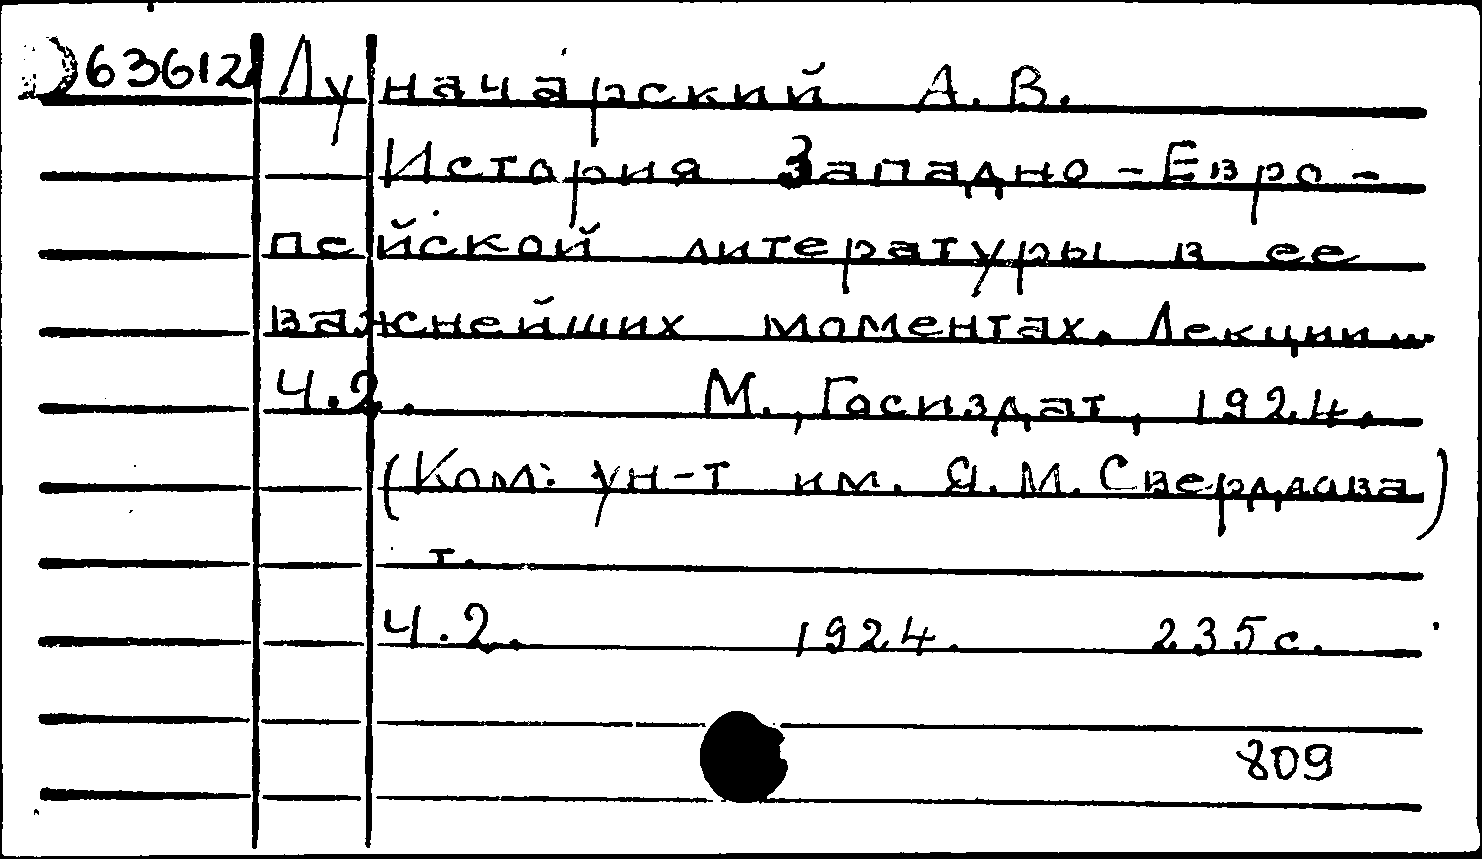 D63612 Луначарский А. В.
История Западно-Евро-
пейской литературы в ее
важнейших моментах. Лекции...
Ч.2. М., Госиздат, 1924.
(Ком. ун-т им. Я.М. Свердлова)
т.
Ч.2. 1924. 235с.
809